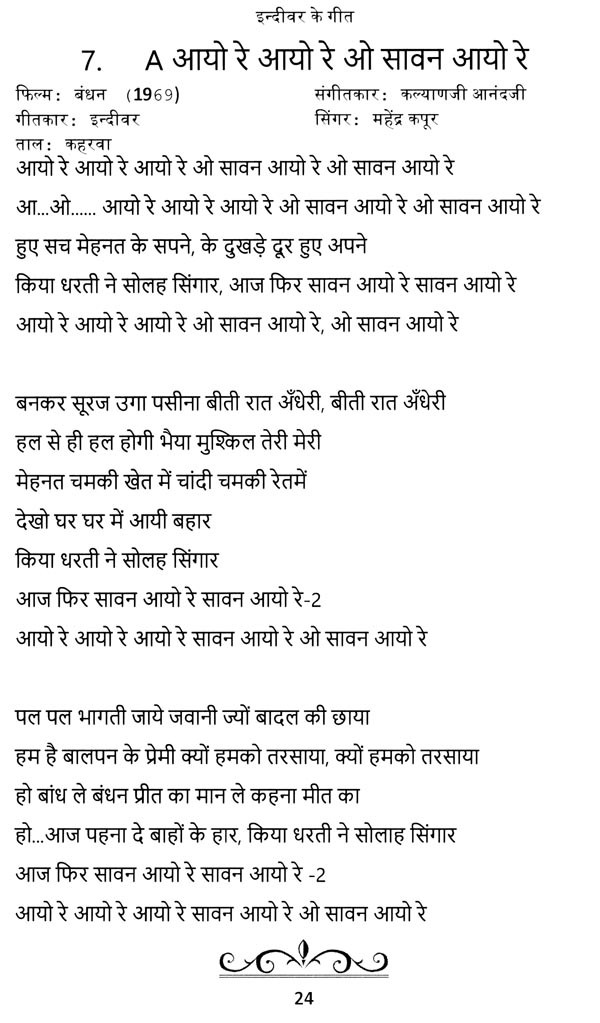 इन्दीवर के गीत
7. A आयो रे आयो रे ओ सावन आयो रे
फिल्म: बंधन (1969) संगीतकार: कल्याणजी आनंदजी
गीतकार: इन्दीवर सिंगर: महेंद्र कपूर
ताल: कहरवा
आयो रे आयो रे आयो रे ओ सावन आयो रे ओ सावन आयो रे
आ...ओ...... आयो रे आयो रे आयो रे ओ सावन आयो रे ओ सावन आयो रे
हुए सच मेहनत के सपने, के दुखड़े दूर हुए अपने
किया धरती ने सोलह सिंगार, आज फिर सावन आयो रे सावन आयो रे
आयो रे आयो रे आयो रे ओ सावन आयो रे, ओ सावन आयो रे
बनकर सूरज उगा पसीना बीती रात अँधेरी, बीती रात अँधेरी
हल से ही हल होगी भैया मुश्किल तेरी मेरी
मेहनत चमकी खेत में चांदी चमकी रेतमें
देखो घर घर में आयी बहार
किया धरती ने सोलह सिंगार
आज फिर सावन आयो रे सावन आयो रे-2
आयो रे आयो रे आयो रे सावन आयो रे ओ सावन आयो रे
पल पल भागती जाये जवानी ज्यों बादल की छाया
हम है बालपन के प्रेमी क्यों हमको तरसाया, क्यों हमको तरसाया
हो बांध ले बंधन प्रीत का मान ले कहना मीत का
हो...आज पहना दे बाहों के हार, किया धरती ने सोलाह सिंगार
आज फिर सावन आयो रे सावन आयो रे -2
आयो रे आयो रे आयो रे सावन आयो रे ओ सावन आयो रे
24